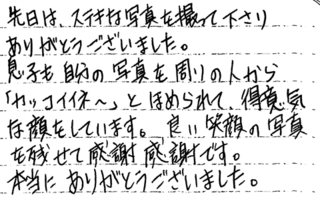 先日は、ステキな写真を撮って下さり
ありがとうございました。
息子も自分の写真を周りの人から
「カッコイイネ〜」とほめられて、得意気
な顔をしています。良い笑顔の写真
を残せて感謝感謝です。
本当にありがとうございました。